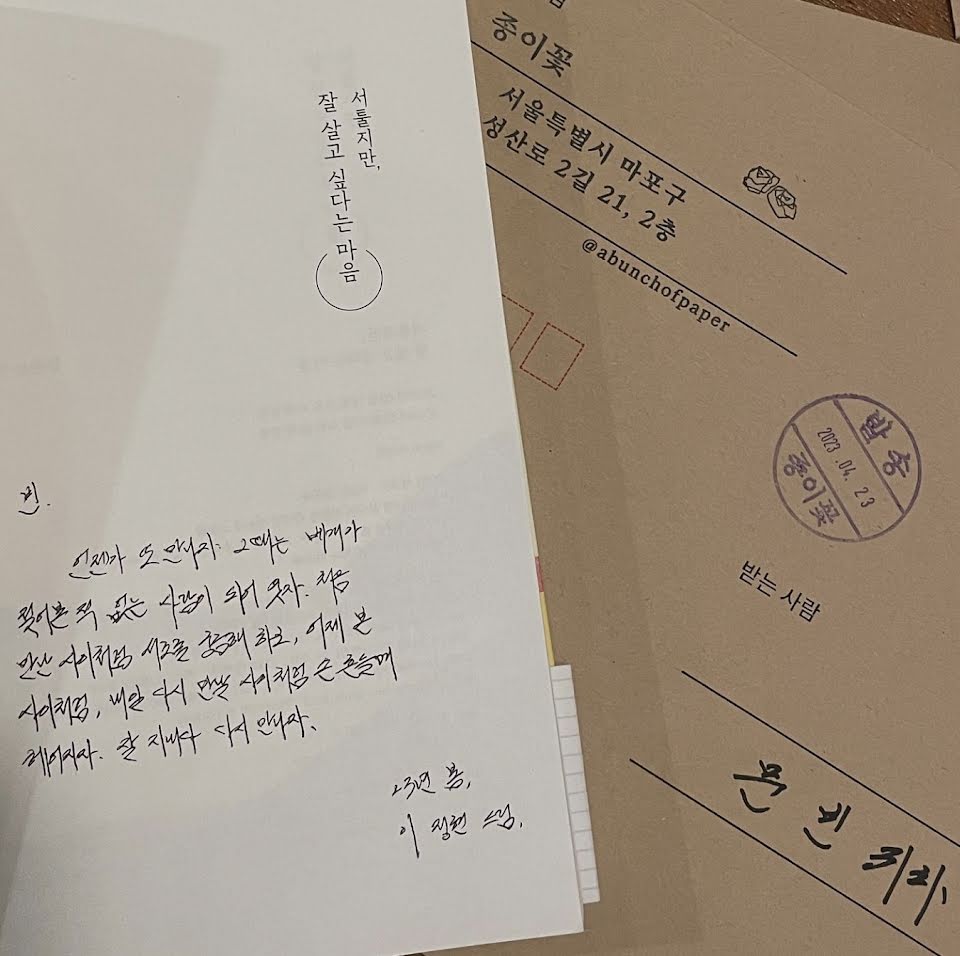 서툴지만,
잘 살고 싶다는 마음
빈.
언젠가 또 만나자. 그때는 베개가
젖어본 적 없는 사람이 되어 웃자. 처음
만난 사이처럼 서로를 궁금해 하고, 어제 본
사이처럼, 내일 다시 만날 사이처럼 손 흔들며
헤어지자. 잘 지내다 다시 만나자.
23년 봄,
이 정현 드림.
종이꽃
서울특별시 마포구
성산로 2길 21, 2층
@abunchofpaper
발송
2023.04.23
종이꽃
받는 사람
문 빈 귀하